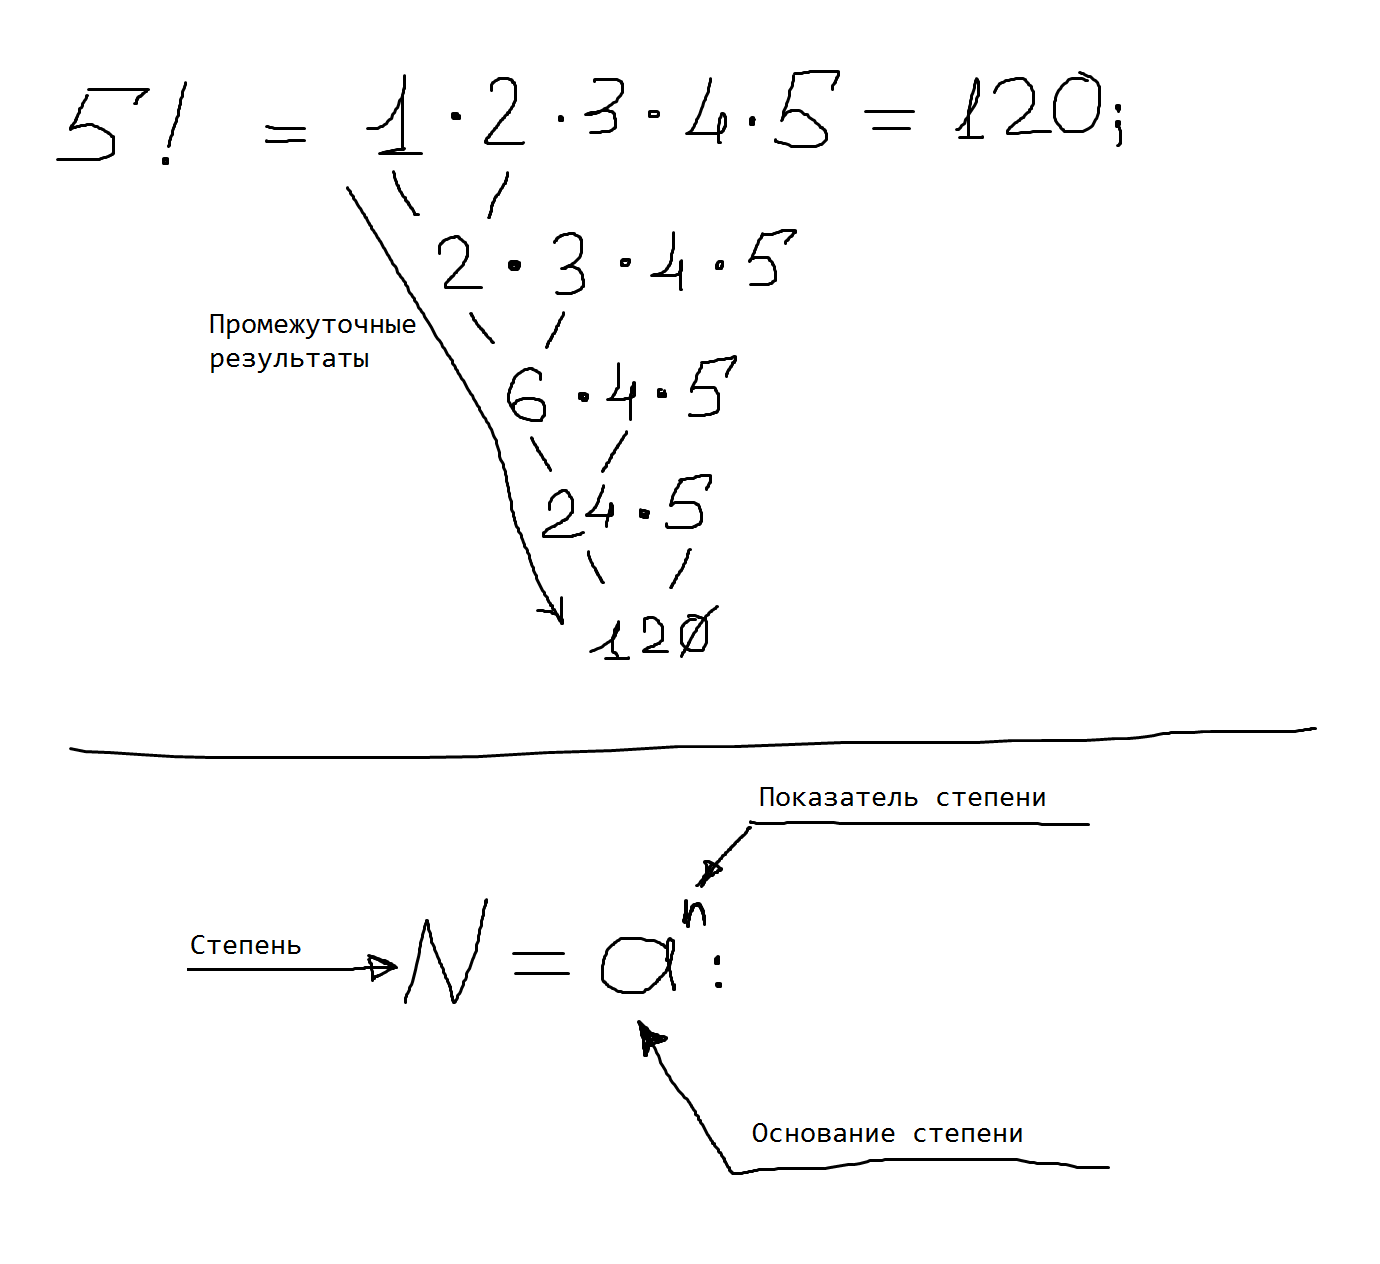 5! = 1 · 2 · 3 · 4 · 5 = 120;
2 · 3 · 4 · 5
Промежуточные
результаты
6 · 4 · 5
24 · 5
120
Показатель степени
Степень
N = aⁿ:
Основание степени